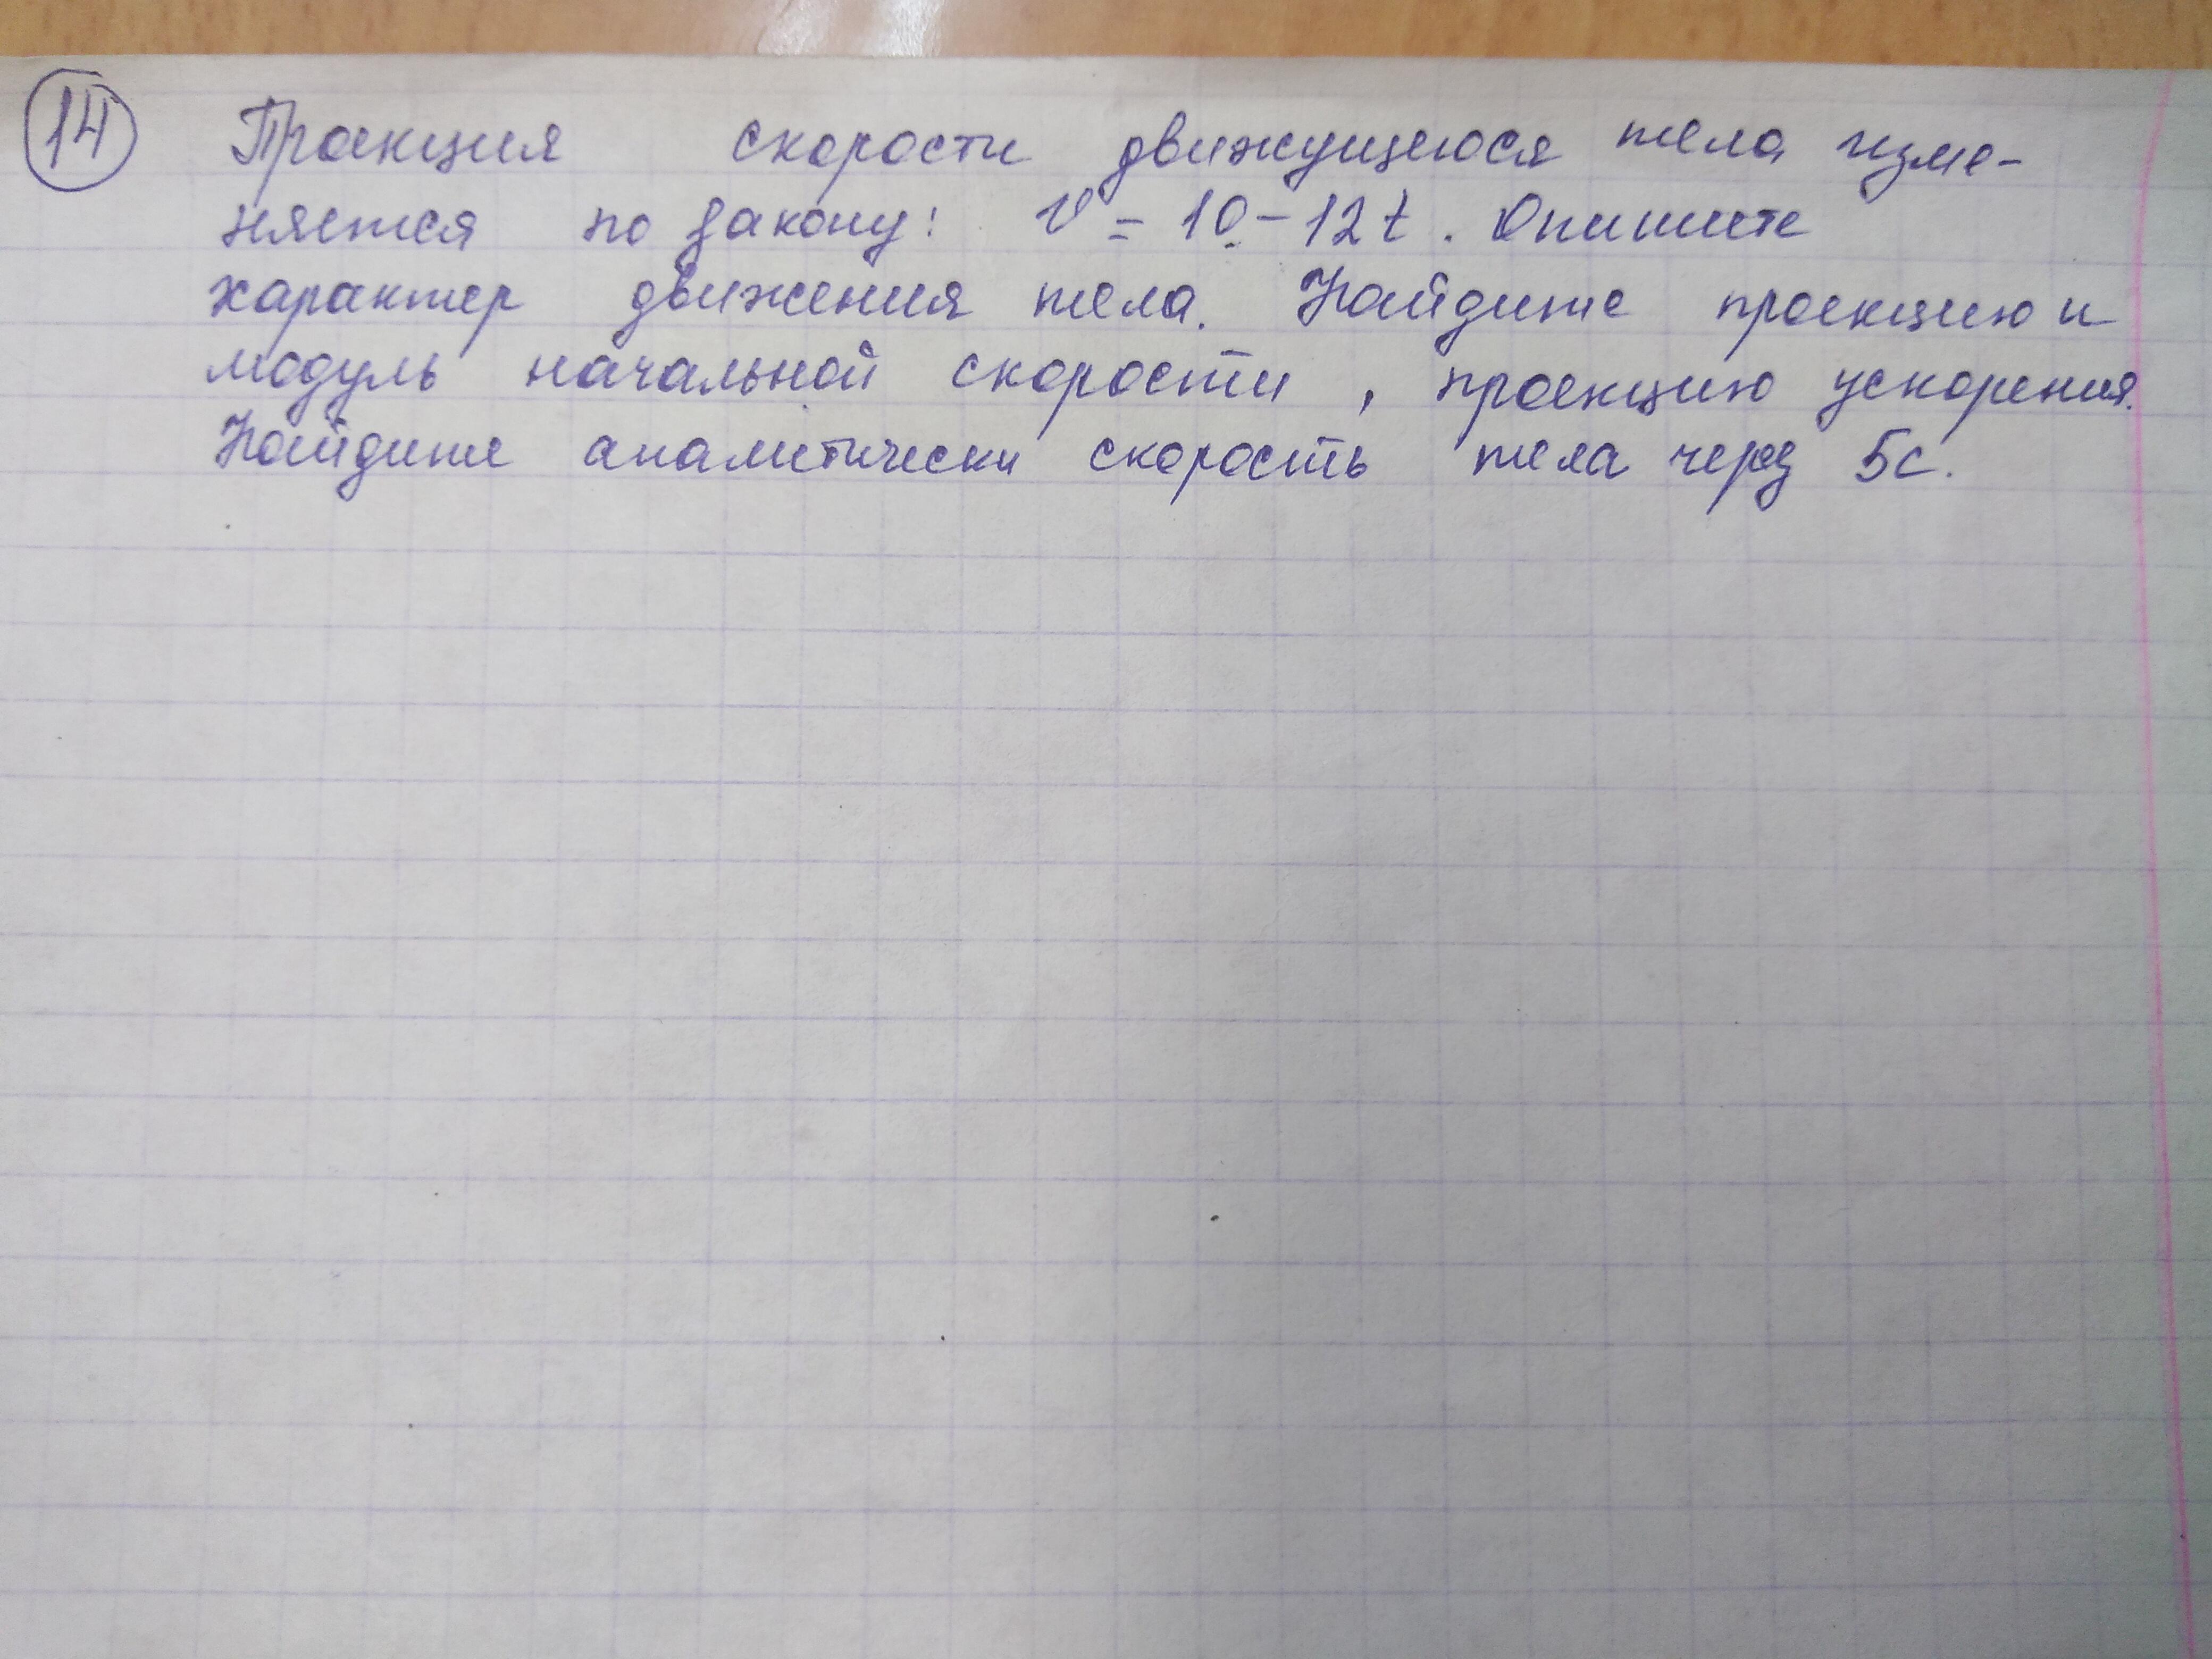 14 Проекция скорости движущегося тела изме-
няется по закону: v = 10 - 12t. Опишите
характер движения тела. Найдите проекцию и
модуль начальной скорости, проекцию ускорения.
Найдите аналитически скорость тела через 5с.